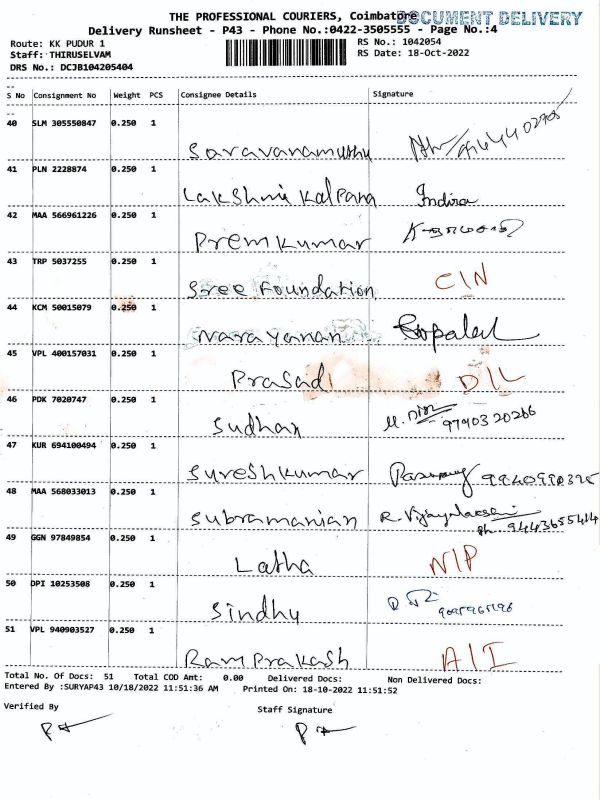 THE PROFESSIONAL COURIERS, Coimbatore
DOCUMENT DELIVERY
Delivery Runsheet - P43 - Phone No.:0422-3505555 - Page No.:4
Route: KK PUDUR 1 RS No.: 1042054
Staff: THIRUSELVAM RS Date: 18-Oct-2022
DRS No.: DCJB104205404
S No Consignment No Weight PCS Consignee Details Signature
40 SLM 305550847 0.250 1
Saravanamuthu
41 PLN 2228874 0.250 1
Lakshmi Kalpana Indira
42 MAA 566961226 0.250 1
Prem Kumar
43 TRP 5037255 0.250 1
Sree Foundation CIN
44 KCM 50015079 0.250 1
Narayanan Gopalal
45 VPL 400157031 0.250 1
Prasad D/L
46 PDK 7020747 0.250 1
Sudhan 9790320266
47 KUR 694100494 0.250 1
Sureshkumar
48 MAA 568033013 0.250 1
Subramanian R. Vijayalaesai
Ph. 9443655414
49 GGN 97849854 0.250 1
Latha N/P
50 DPI 10253508 0.250 1
Sindhu
51 VPL 940903527 0.250 1
Ram Prakash A/I
Total No. Of Docs: 51 Total COD Amt: 0.00 Delivered Docs: Non Delivered Docs:
Entered By :SURYAP43 10/18/2022 11:51:36 AM Printed On: 18-10-2022 11:51:52
Verified By Staff Signature